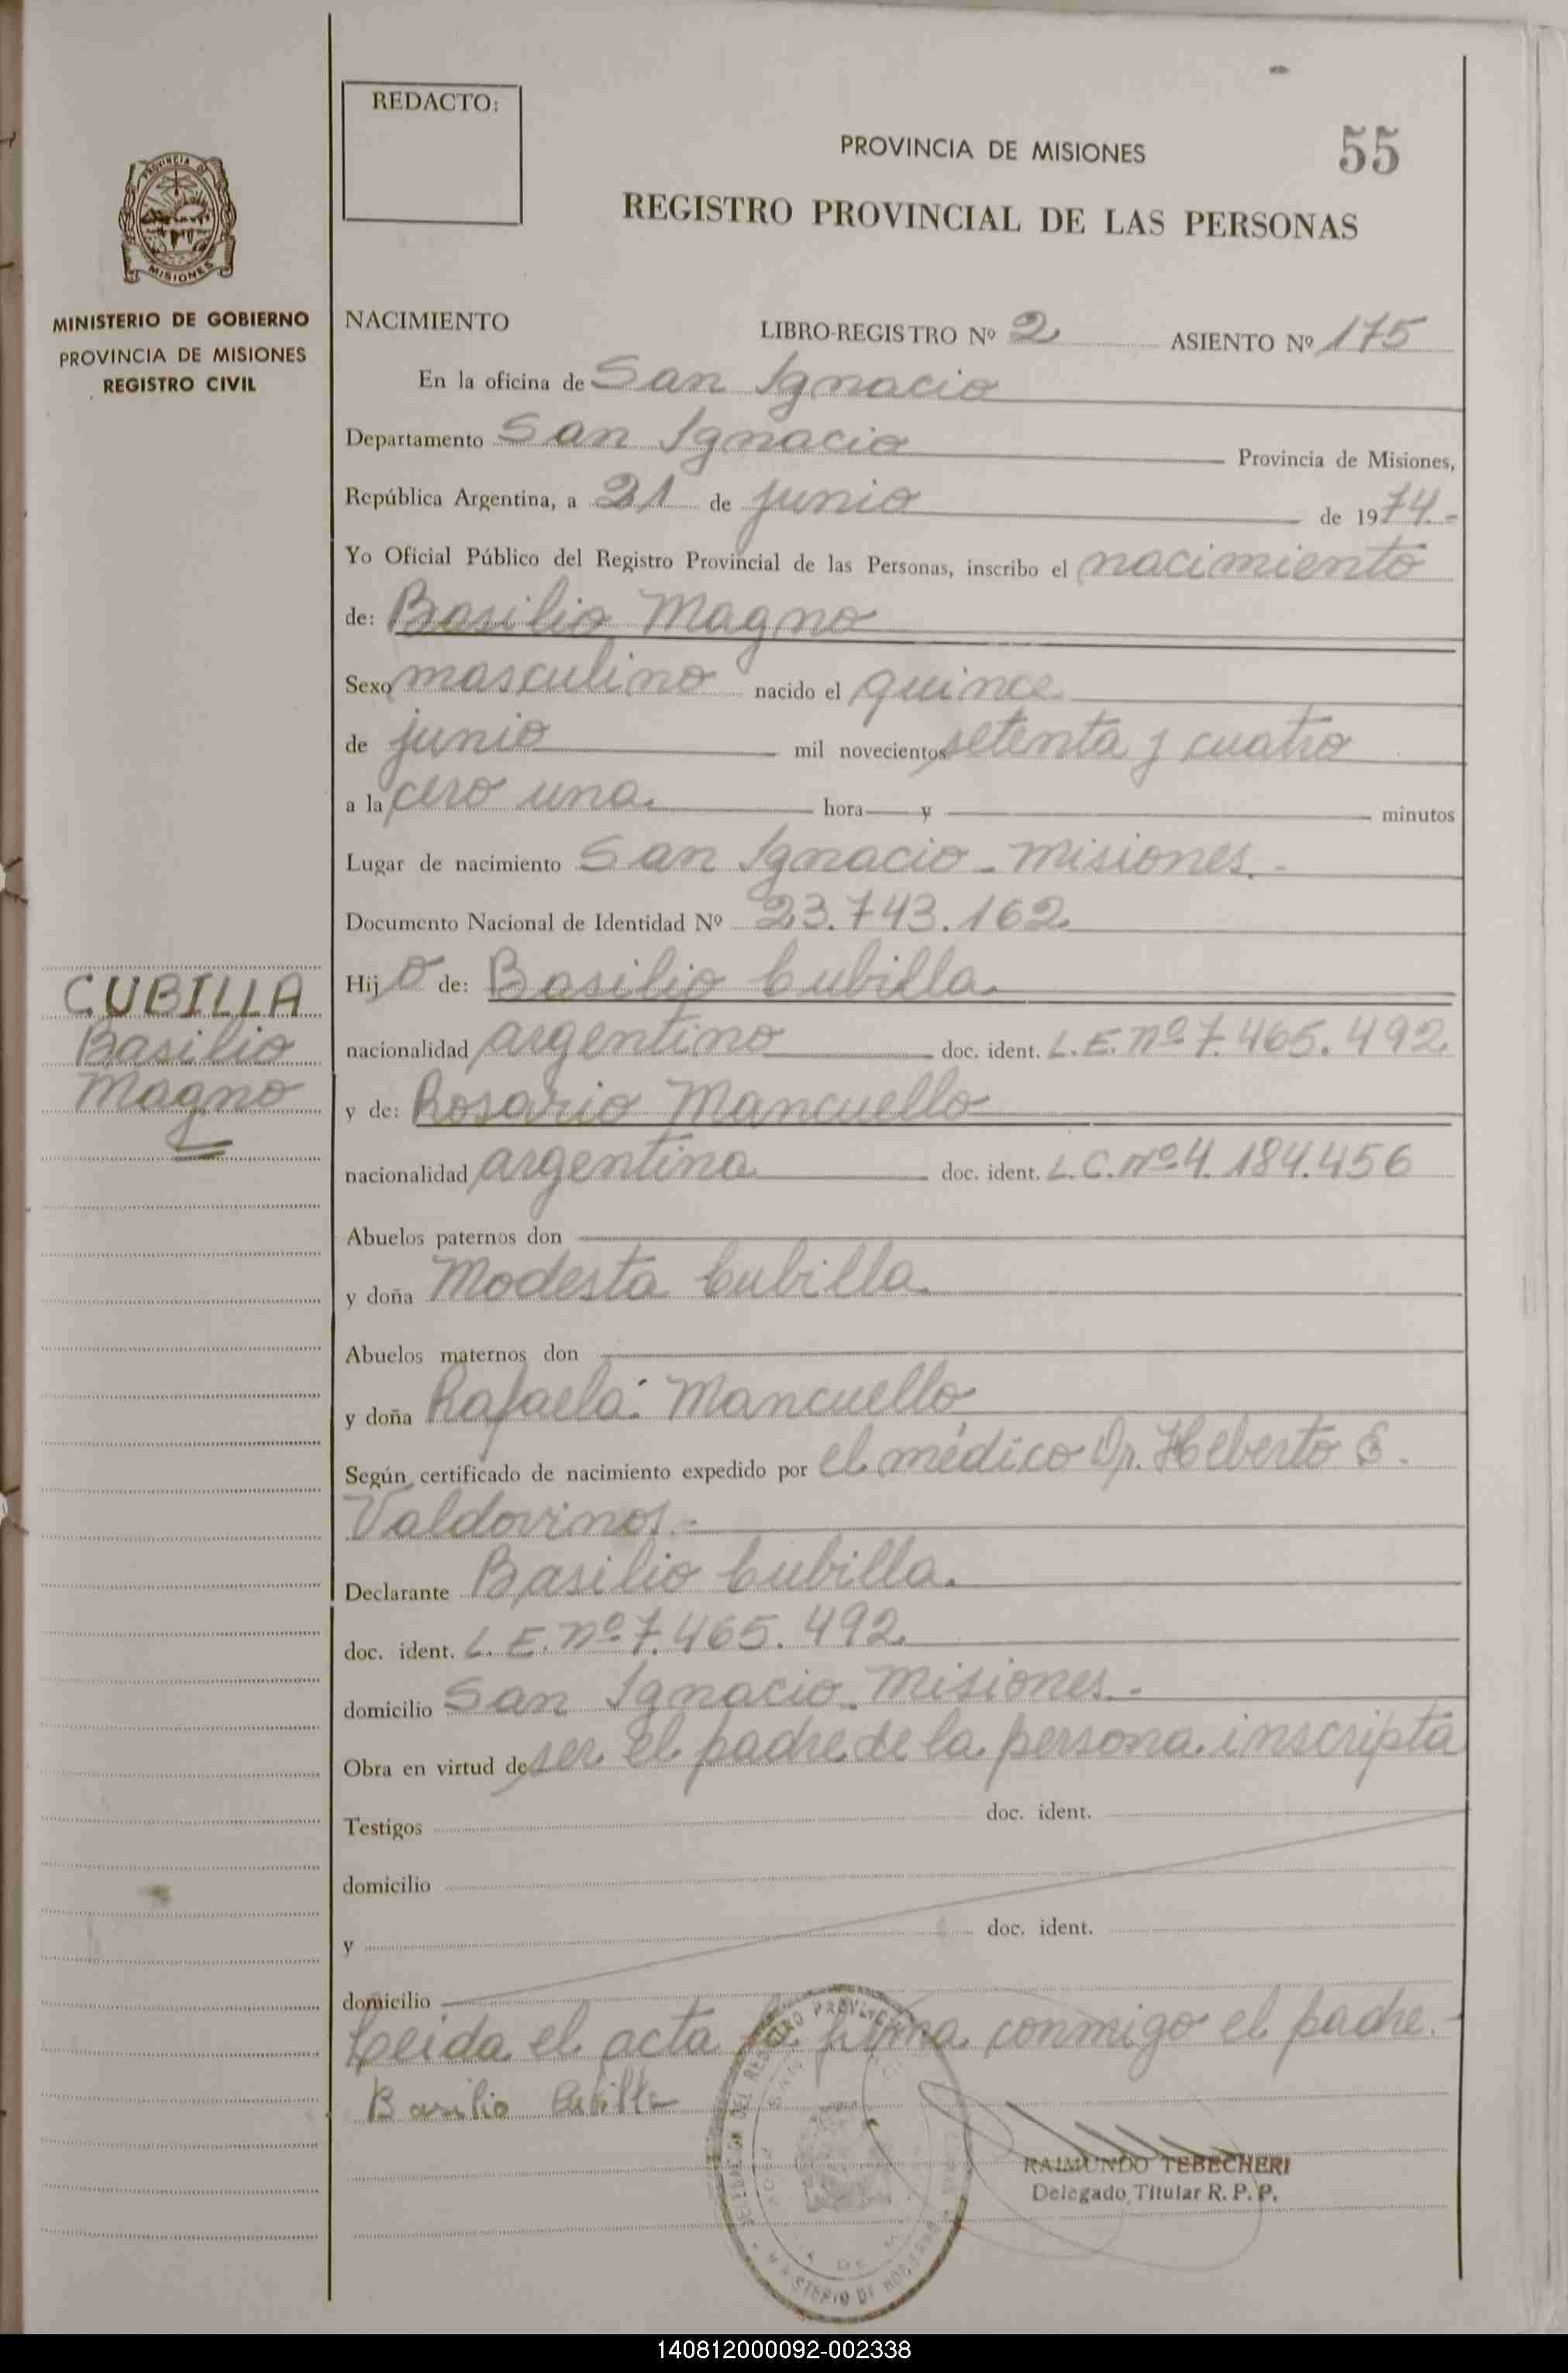 REDACTO:
PROVINCIA DE MISIONES
55
REGISTRO PROVINCIAL DE LAS PERSONAS
PROVINCIA DE
MISIONES
MINISTERIO DE GOBIERNO
PROVINCIA DE MISIONES
REGISTRO CIVIL
NACIMIENTO LIBRO-REGISTRO Nº 2 ASIENTO Nº 175
En la oficina de San Ignacio
Departamento San Ignacio Provincia de Misiones,
República Argentina, a 21 de junio de 1974.-
Yo Oficial Público del Registro Provincial de las Personas, inscribo el nacimiento
de: Basilio Magno
Sexo masculino nacido el quince
de junio mil novecientos setenta y cuatro
a la cero una hora y minutos
Lugar de nacimiento San Ignacio - Misiones.-
Documento Nacional de Identidad Nº 23.743.162
CUBILLA
Basilio
Magno
Hijo de: Basilio Cubilla
nacionalidad argentino doc. ident. L.E. nº 7.465.492
y de: Rosario Mancuello
nacionalidad argentina doc. ident. L.C. nº 4.184.456
Abuelos paternos don
y doña Modesta Cubilla
Abuelos maternos don
y doña Rafaela Mancuello
Según certificado de nacimiento expedido por el médico Dr. Heberto E.
Valdovinos.-
Declarante Basilio Cubilla.
doc. ident. L.E. nº 7.465.492
domicilio San Ignacio - Misiones.-
Obra en virtud de ser el padre de la persona inscripta
Testigos doc. ident.
domicilio
y doc. ident.
domicilio
Leída el acta la firma conmigo el padre.-
Basilio Cubilla
RAIMUNDO TEBECHERI
Delegado Titular R. P. P.
DEL REGISTRO PROVINCIAL
MINISTERIO DE GOBIERNO
140812000092-002338